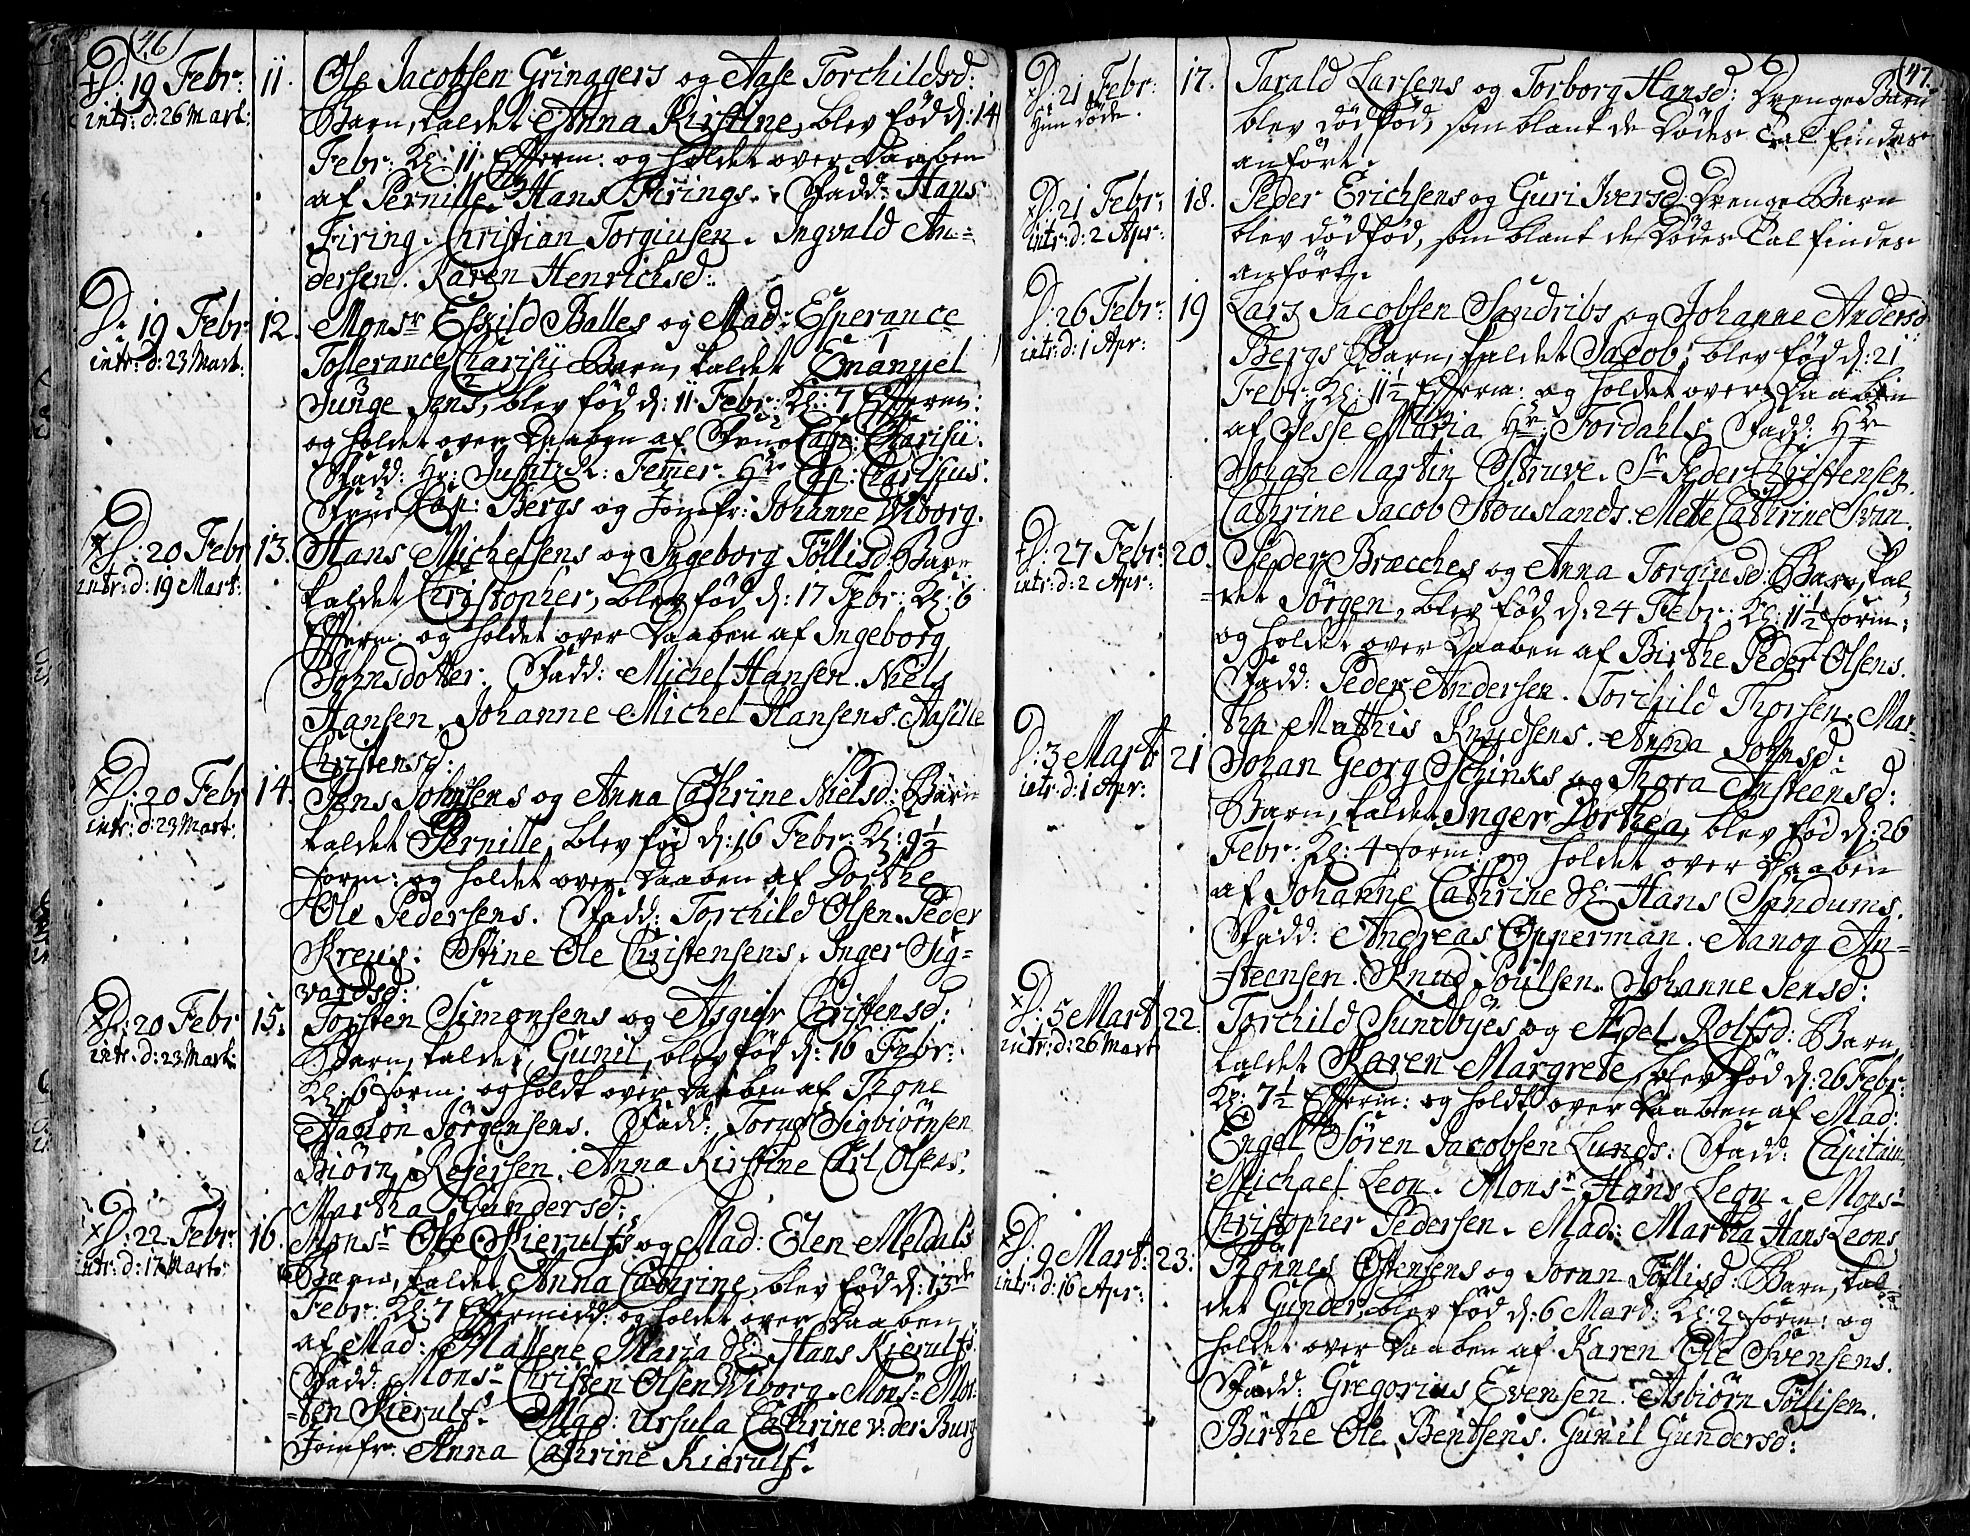 46
D: 19 Febr:
intr: d: 26 Mart:
11.
Ole Jacobsen Gringgers og Aase Torchildsd:
Barn, kaldet Anna Kirstine, blev fød d: 14
Febr: Kl: 11 Efterm: og holdet over Daaben
af Pernille Hans Firings. Fadd: Hans
Firing. Christian Torgiusen. Ingvald An=
dersen. Karen Henrichsd:
D: 19 Febr:
intr: d: 23 Mart:
12.
Monsr Eskild Balles og Mad: Esperance
Tollerance Charisii Barn, kaldet Emanuel
Junge Jens, blev fød d: 11 Febr: Kl: 7 Efterm:
og holdet over Daaben af Frue Cap: Charisii.
Fadd: Hr: Justitz R: Femer. Hr Cap: Charisius.
Frue Cap: Bergs og Jomfr: Johanne Wiborg.
D: 20 Febr
intr: d: 19 Mart:
13.
Hans Michelsens og Ingeborg Tøllisd: Barn
kaldet Christopher, blev fød d: 17 Febr: Kl: 6
Efterm: og holdet over Daaben af Ingeborg
Johnsdotter. Fadd: Michel Hansen. Niels
Hansen. Johanne Michel Hansens. Aasille
Christensd:
D: 20 Febr
intr: d: 23 Mart:
14.
Jens Johnsens og Anna Cathrine Nielsd: Barn
kaldet Pernille, blev fød d: 16 Febr: Kl: 9½
form: og holdet over Daaben af Dorthe
Ole Pedersens. Fadd: Torchild Olsen. Peder
Kreus. Stine Ole Christensens. Inger Sig=
vardsd:
D: 20 Febr
intr: d: 23 Mart:
15.
Torsten Simonsens og Asgier Christensd:
Barn, kaldet Gunil, blev fød d: 16 Febr:
Kl: 6 form: og holdt over Daaben af Thone
Hagen Jørgensens. Fadd: Torup Sigbiørnsen
Biørn Roiersen. Anna Kirstine Carl Olsens.
Martha Gundersd:
D: 22 Febr:
intr: d: 17 Mart:
16.
Monsr Ole Kierulfs og Mad: Elen Meldals
Barn, kaldet Anna Cathrine, blev fød d: 13de
Febr: Kl: 7 Eftermidd: og holdet over Daaben
af Mad: Mallene Maria Sl: Hans Kierulfs.
Fadd: Monsr Christen Olsen Wiborg. Monsr Mor=
=ten Kierulf. Mad: Ursula Cathrine v: der Burg
Jomfr: Anna Cathrine Kierulf.
47.
D: 21 Febr:
Hun døde.
17.
Tarald Larsens og Torborg Hansd: Drenge Barn
blev død fød, som blant de Dødes Tal findes
anført.
D: 21 Febr:
intr: d: 2 Apr:
18.
Peder Erichsens og Guri Iversd: Drenge Barn
blev dødfød, som blant de Dødes Tal findes
anført.
D: 26 Febr:
intr: d: 1 Apr:
19
Lars Jacobsen Sandribs og Johanne Andersd:
Bergs Barn, kaldet Jacob, blev fød d: 21
Febr: Kl: 11½ Efterm: og holdet over Daaben
af Sesse Maria Hr: Tordahls. Fadd: Hr
Johan Martin Struve. Sr Peder Christensen.
Cathrine Jacob Stouslands. Mette Cathrine Svan.
D: 27 Febr:
intr: d: 2 Apr:
20.
Peder Bræcches og Anna Torgiusd: Barn, kal=
=det Jørgen, blev fød d: 24 Febr: Kl: 11½ form:
og holdet over Daaben af Birthe Peder Olsens.
Fadd: Peder Andersen. Torchild Thorsen. Mar=
tha Mathis Knudsens. Anna Johnsd:
D: 3 Mart:
intr: d: 1 Apr:
21
Johan Georg Schinks og Thora Ansteensd:
Barn, kaldet Inger Dorthea, blev fød d: 26
Febr: Kl: 4 form: og holdet over Daaben
af Johanne Cathrine Sl: Hans Sandums.
Fadd: Andreas Opperman. Aanon An=
=steensen. Knud Poulsen. Johanne Jensd:
D: 5 Mart
intr: d: 26 Mart
22.
Torchild Sundbyes og Adel Rolfsd: Barn
kaldet Karen Margrete, blev fød d: 26 Febr:
Kl: 7½ Efterm: og holdt over Daaben af Mad:
Engel Søren Jacobsen Lunds: Fadd: Capitain
Michael Leon. Monsr Hans Leon. Monsr
Christopher Pedersen. Mad: Martha Hans Leons.
D: 9 Mart:
intr: d: 16 Apr:
23.
Thønnes Ostensens og Joran Tøllisd: Barn, kal=
det Gunder, blev fød d: 6 Mart: Kl: 2 form: og
holdet over Daaben af Karen Ole Svensens.
Fadd: Gregorius Evensen. Asbiørn Tøllisen.
Birthe Ole Bentsens. Gunil Gundersd: